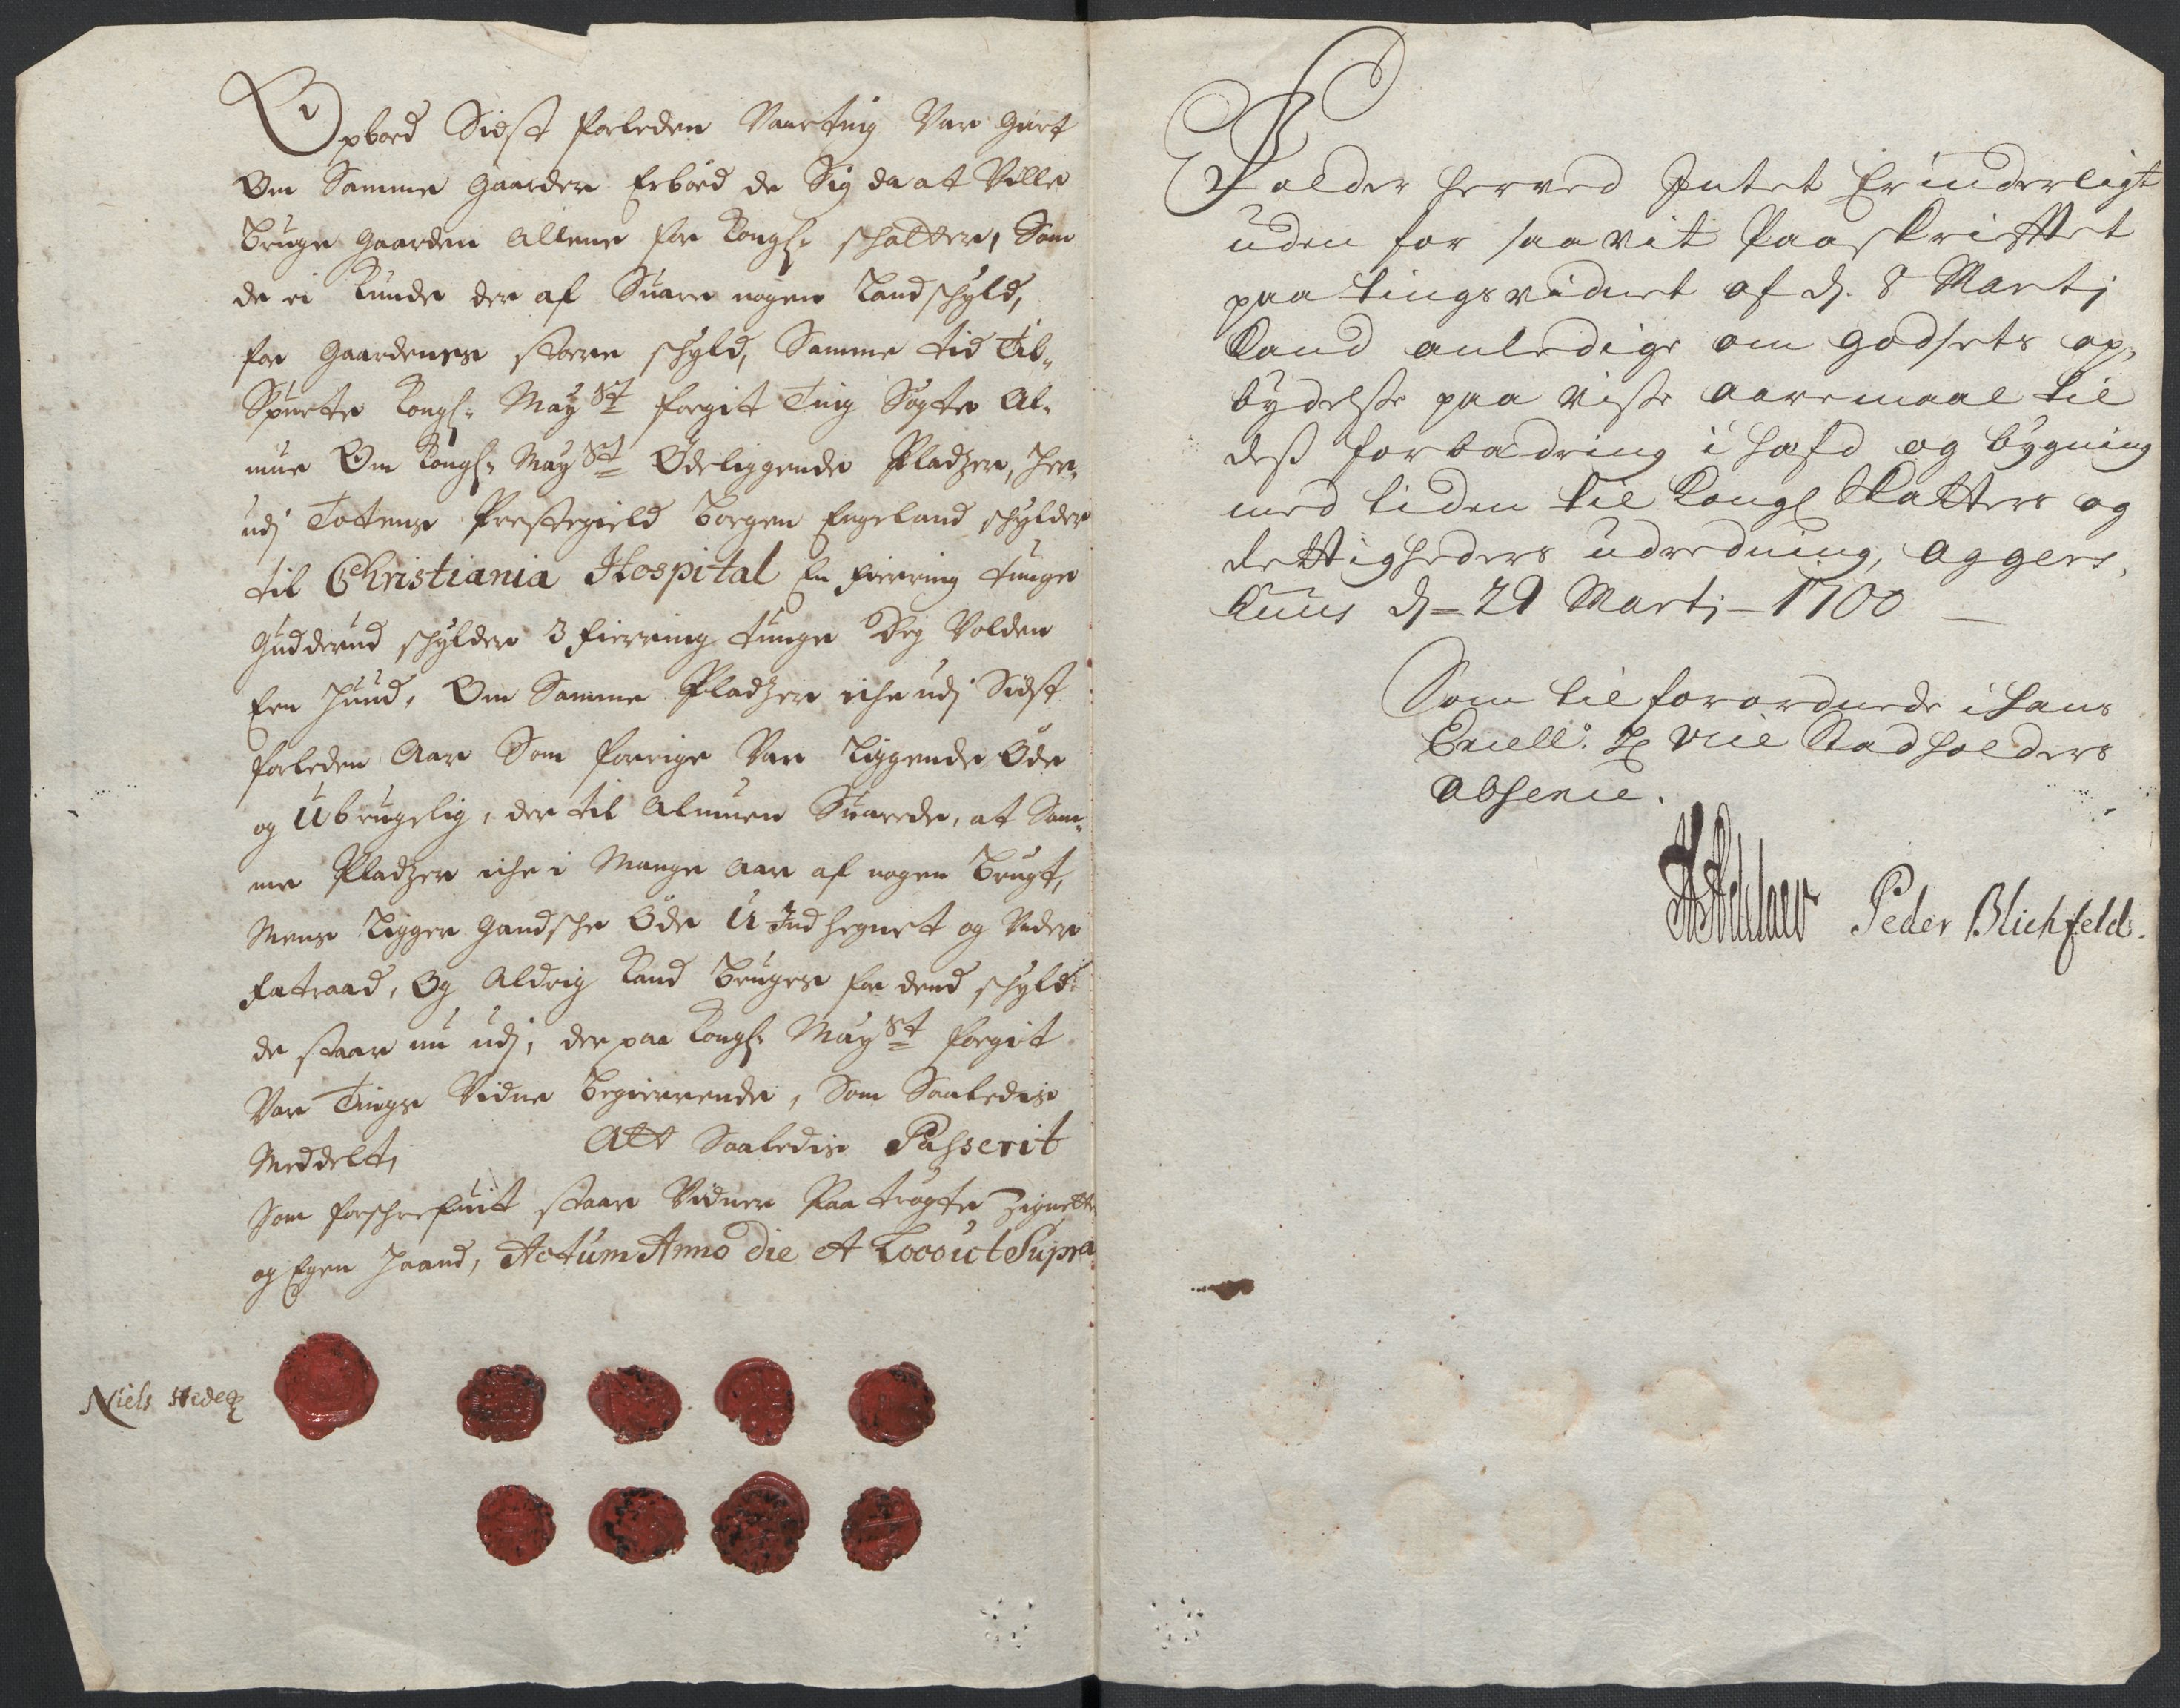 Opbœd Sidst forleden Vaarting Var giort
Om Samme gaarder Erbœd de Sig da at Ville
bruge gaarden allene for Kongl: schatter, Som
de ei Kunde der af Suare nogen Landschyld,
for gaardenes storre schyld, Samme tid Til-
Spurte Kongl: May.st fogit Ting Søgte Al-
mue Om Kongl: May.st Ødeliggende Pladzer, her-
udj Totens Prestegield Borgen Engeland schylder
til Christiania Hospital En fierring tunge
Gudderud schylder 3 fierring tunge Dej Volden
Een huud, Om Samme Pladzer iche udj Sidst
forleden Aar Som forrige Var Liggende Øde
og Ubrugelig, der til Almuen Suarede, at Sam-
me Pladzer iche i Mange Aar af nogen brugt,
Mens Ligger gandsche Øde U-Indhegnet og Under
fatraad, Og Aldrig Kand bruges for dend schyld
de staar nu udj, der paa Kongl: May.st fogit
Var Tings Vidne begierrende, Som Saaledis
Meddelt,     Att Saaledis Passerit
Som forschrefuit staar Vidner Paa trögte Zignetter
og Egen Haand, Actum Anno die et Loco ut Supra
Niels
Falder herved Intet Erinderligt
uden for saavit Paaskrifftet
paa tingsvidnet af d. 8 Martj
Kand anledige om godsets op-
bydelse paa visse aaremaal til
dess forbædring i hæfd og bygning
med tiden til Kongl Skatters og
rettigheders udredning, Aggers-
huus d= 29 Martj - 1700 -
Som til forordnede i hans
Excell: H vice Stadholders
absence.
Peder Blichfeld.